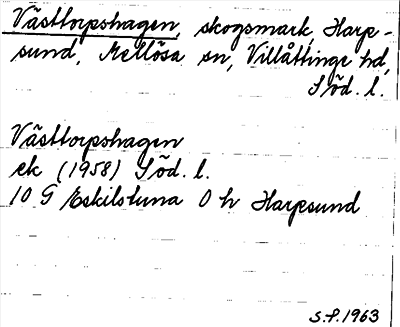 Västtorpshagen, skogsmark, Harp-
sund, Mellösa sn, Villåttinge hd,
Söd. l.
Västtorpshagen
ek (1958) Söd. l.
10 G Eskilstuna 0 h Harpsund
S.f. 1963